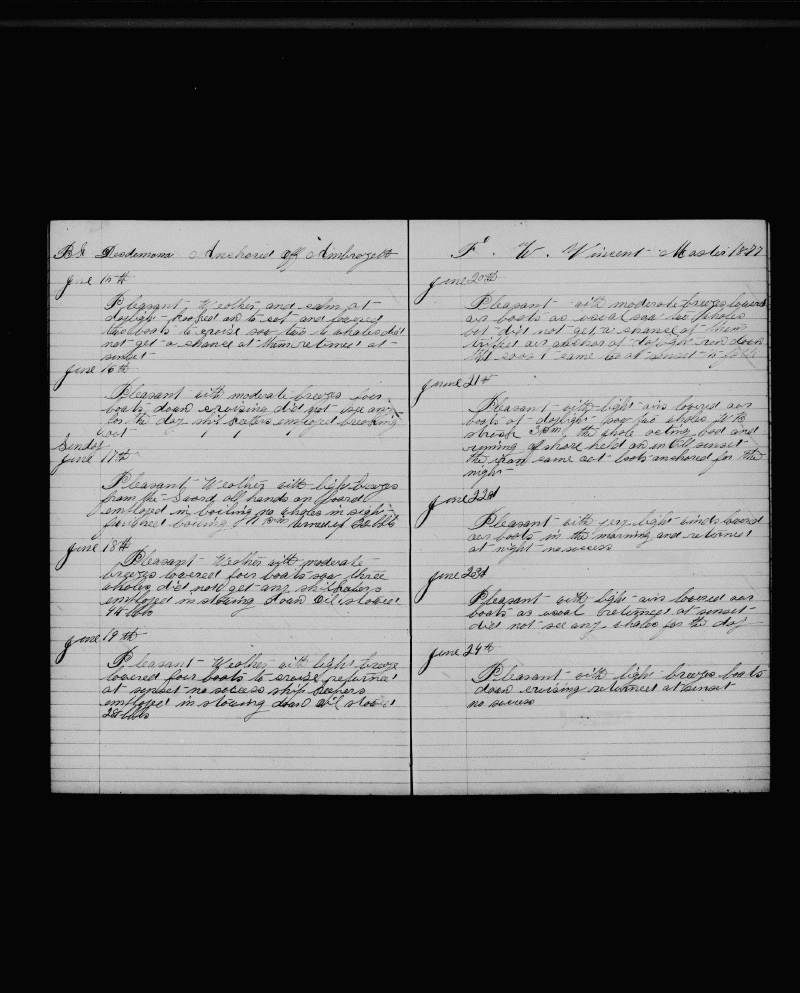 Bk Desdemona Anchored off Ambrozett
June 15th
Pleasant Weather and calm at
daylight hooked on to cut and lowered
two boats to cruise saw two whales did
not get a chance at them returned at
sunset
June 16th
Pleasant with moderate breezes four
boats down cruising did not see any
for the day ship keepers employed breaking
out
Sunday
June 17th
Pleasant Weather with light breezes
from the all hands on board
employed in boiling no whales in sight
finished boiling turned up bbls
June 18th
Pleasant Weather with moderate
breezes lowered four boats saw three
whales did not get any shipkeepers
employed in stowing down oil stowed
94 bbls
June 19th
Pleasant Weather with light breeze
lowered four boats to cruise returned
at sunset no success ship keepers
employed in stowing down oil stowed
bbls
Fd. W. Vincent Master 1877
June 20th
Pleasant with moderate breezes lowered
our boats as usual saw two whales
but did not get a chance at them
our anchor at daylight run down
the coast came to at sunset
June 21st
Pleasant with light airs lowered our
boats at daylight saw two whales
struck the whale acting bad and
running off shore held on until sunset
the came out boats anchored for the
night
June 22d
Pleasant with very light winds lowered
our boats in the morning and returned
at night no success
June 23d
Pleasant with light airs lowered our
boats as usual returned at sunset
did not see any whales for the day
June 24th
Pleasant with light breezes boats
down cruising returned at sunset
no success